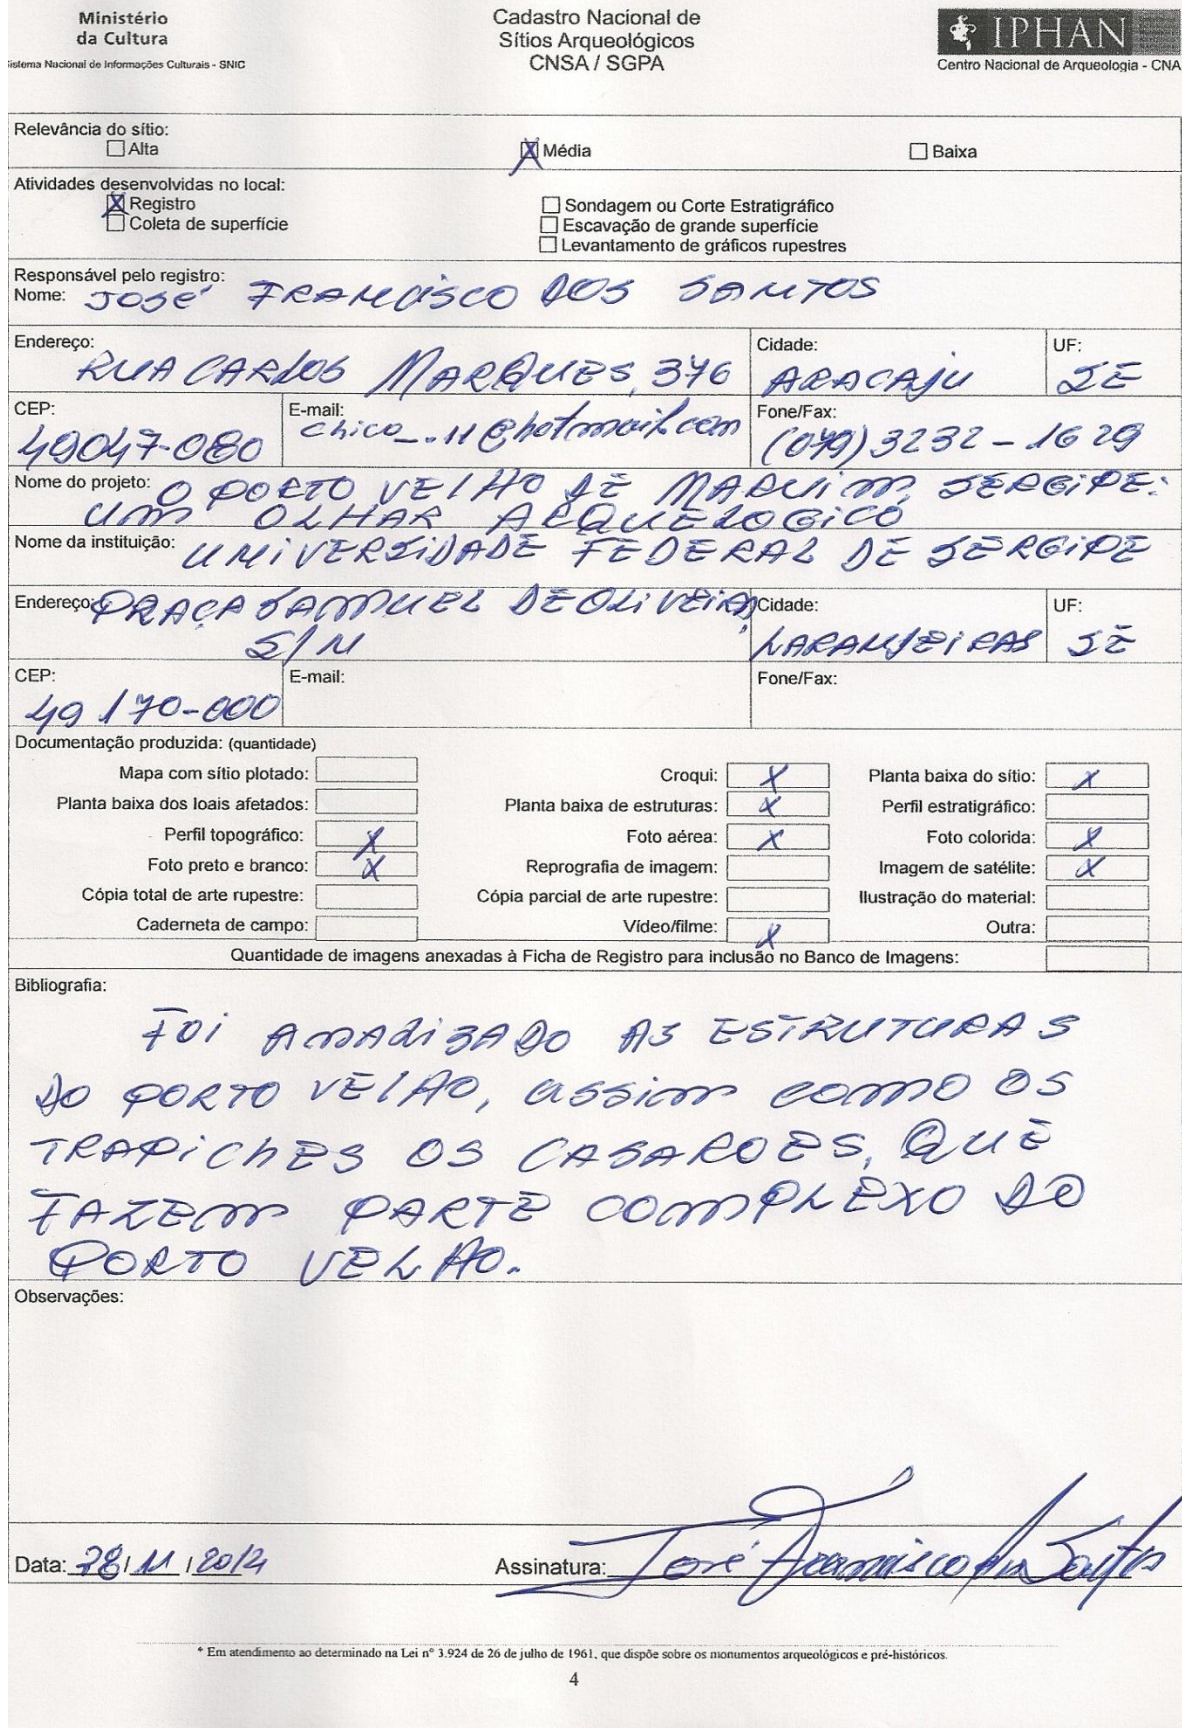 Ministério
da Cultura
Sistema Nacional de Informações Culturais - SNIC
Cadastro Nacional de
Sítios Arqueológicos
CNSA / SGPA
IPHAN
Centro Nacional de Arqueologia - CNA
Relevância do sítio:
Alta X Média Baixa
Atividades desenvolvidas no local:
X Registro
Coleta de superfície
Sondagem ou Corte Estratigráfico
Escavação de grande superfície
Levantamento de gráficos rupestres
Responsável pelo registro:
Nome: JOSÉ FRANCISCO DOS SANTOS
Endereço: RUA CARLOS MARQUES, 376
Cidade: ARACAJU
UF: SE
CEP: 49047-080
E-mail: chico_..11@hotmail.com
Fone/Fax: (079) 3232-1629
Nome do projeto: O PORTO VELHO DE MARUIM, SERGIPE:
UM OLHAR ARQUEOLOGICO
Nome da instituição: UNIVERSIDADE FEDERAL DE SERGIPE
Endereço: PRAÇA SAMUEL DE OLIVEIRA,
S/N
Cidade: LARANJEIRAS
UF: SE
CEP: 49170-000
E-mail:
Fone/Fax:
Documentação produzida: (quantidade)
Mapa com sítio plotado: Croqui: X Planta baixa do sítio: X
Planta baixa dos loais afetados: Planta baixa de estruturas: X Perfil estratigráfico:
Perfil topográfico: X Foto aérea: X Foto colorida: X
Foto preto e branco: X Reprografia de imagem: Imagem de satélite: X
Cópia total de arte rupestre: Cópia parcial de arte rupestre: Ilustração do material:
Caderneta de campo: Vídeo/filme: X Outra:
Quantidade de imagens anexadas à Ficha de Registro para inclusão no Banco de Imagens:
Bibliografia:
FOI ANALIZADO AS ESTRUTURAS
DO PORTO VELHO, assim como OS
TRAPICHES OS CASAROES, QUE
FAZEM PARTE COMPLEXO DO
PORTO VELHO.
Observações:
Data: 28/11/2012
Assinatura: José Francisco dos Santos
* Em atendimento ao determinado na Lei nº 3.924 de 26 de julho de 1961, que dispõe sobre os monumentos arqueológicos e pré-históricos.
4